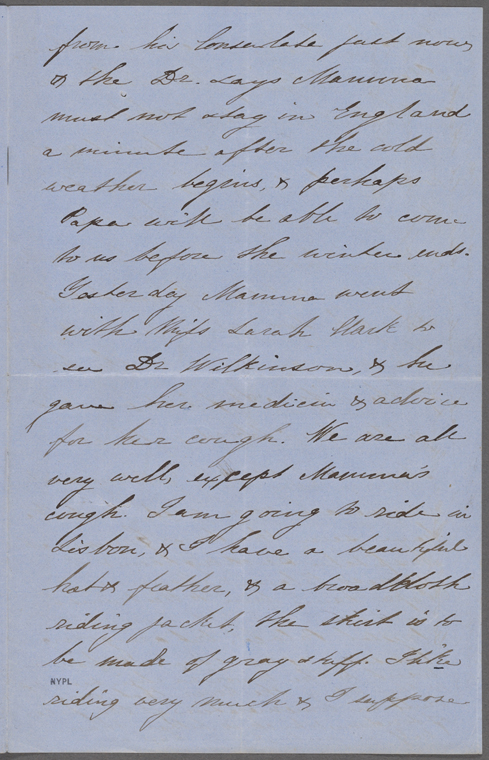 from his Consulate just now,
& the Dr. says Mamma
must not stay in England
a minute after the cold
weather begins, & perhaps
Papa will be able to come
to us before the winter ends.
Yesterday Mamma went
with Miss Sarah Clark to
see Dr Wilkinson, & he
gave her medicin & advice
for her cough. We are all
very well, except Mamma's
cough. I am going to ride in
Lisbon, & I have a beautiful
hat & feather, & a broadcloth
riding jacket, the skirt is to
be made of gray stuff. I like
NYPL
riding very much & I suppose